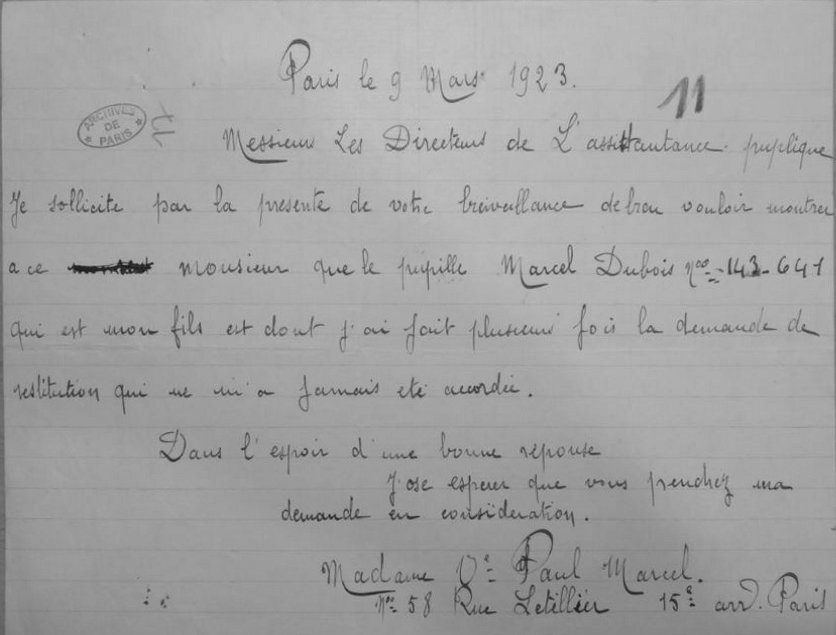 Paris le 9 Mars 1923.
11
ARCHIVES DE PARIS
Messieurs Les Directeurs de L'assittautance puplique
Je sollicite par la presente de votre breiveillance de brou vouloir montrer
a ce monsieur que le pupille Marcel Dubois Noo 143-641
qui est mon fils est dont j'ai fait plusieurs fois la demande de
restitution qui ne m'a jamais eté accordée.
Dans l'espoir d'une bonne reponse
J'ose esperer que vous prendrez ma
demande en considération.
Madame Ve Paul Marcel.
No 58 Rue Letellier 15e arrd. Paris